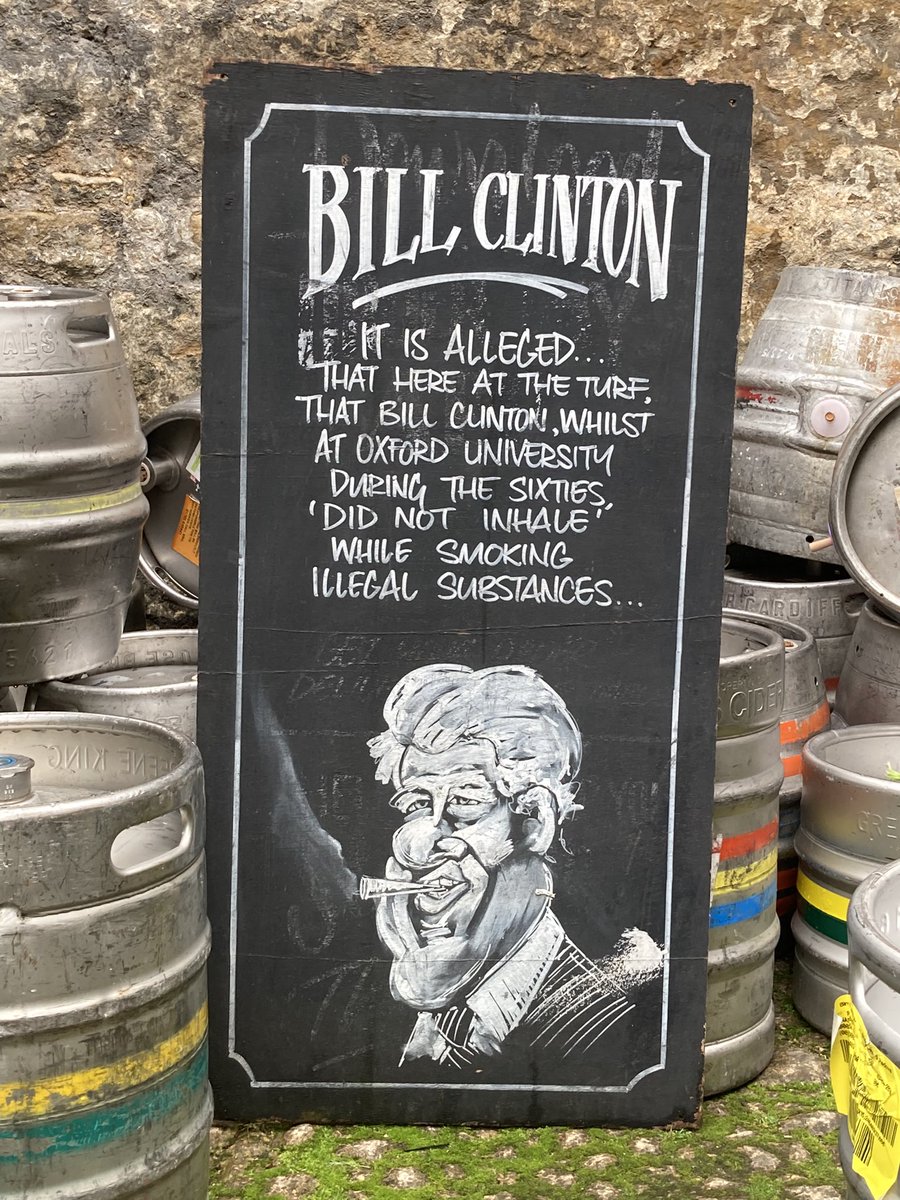 BILL CLINTON
IT IS ALLEGED...
THAT HERE AT THE TURF,
THAT BILL CLINTON, WHILST
AT OXFORD UNIVERSITY
DURING THE SIXTIES,
'DID NOT INHALE'
WHILE SMOKING
ILLEGAL SUBSTANCES...
ALS
5421
ENE KING
TITANI
CARDIFF
CIDER
GRE